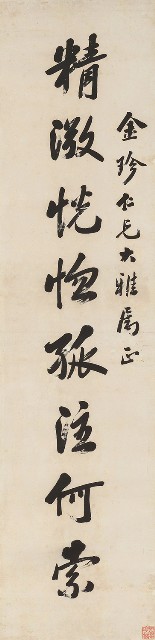 金珍仁兄大雅属正
精微恍惚孤注何索